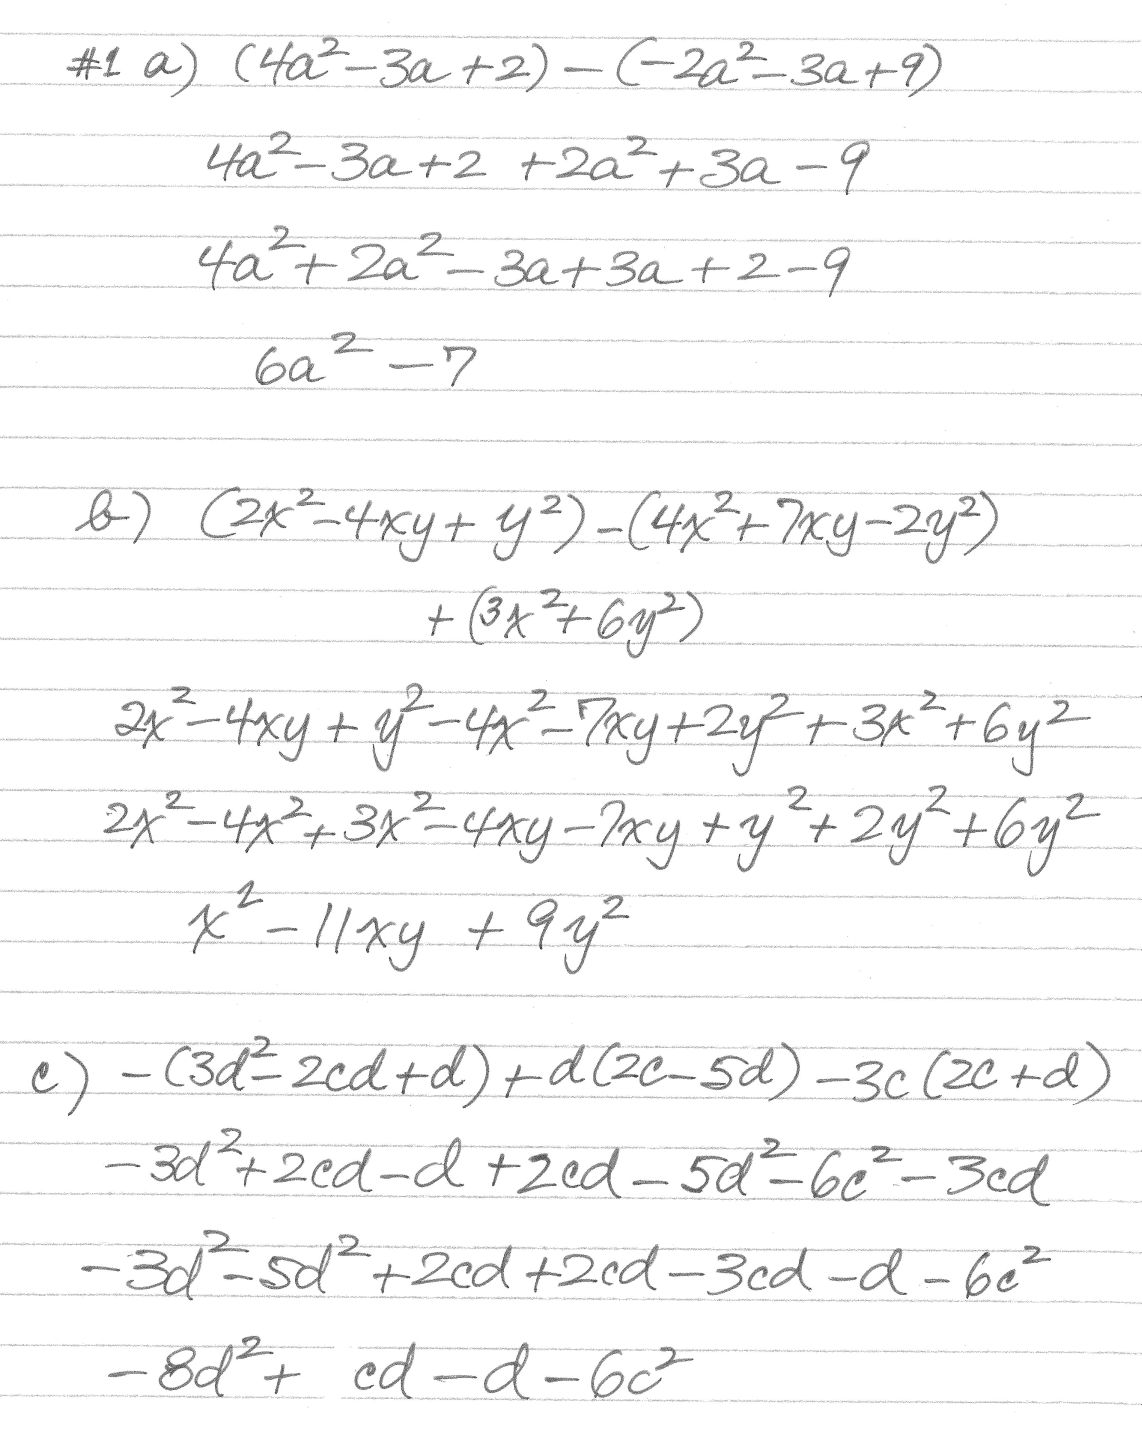 #1 a) (4a² - 3a + 2) - (-2a² - 3a + 9)
4a² - 3a + 2 + 2a² + 3a - 9
4a² + 2a² - 3a + 3a + 2 - 9
6a² - 7
b) (2x² - 4xy + y²) - (4x² + 7xy - 2y²)
+ (3x² + 6y²)
2x² - 4xy + y² - 4x² - 7xy + 2y² + 3x² + 6y²
2x² - 4x² + 3x² - 4xy - 7xy + y² + 2y² + 6y²
x² - 11xy + 9y²
c) - (3d² - 2cd + d) + d(2c - 5d) - 3c(2c + d)
- 3d² + 2cd - d + 2cd - 5d² - 6c² - 3cd
- 3d² - 5d² + 2cd + 2cd - 3cd - d - 6c²
- 8d² + cd - d - 6c²